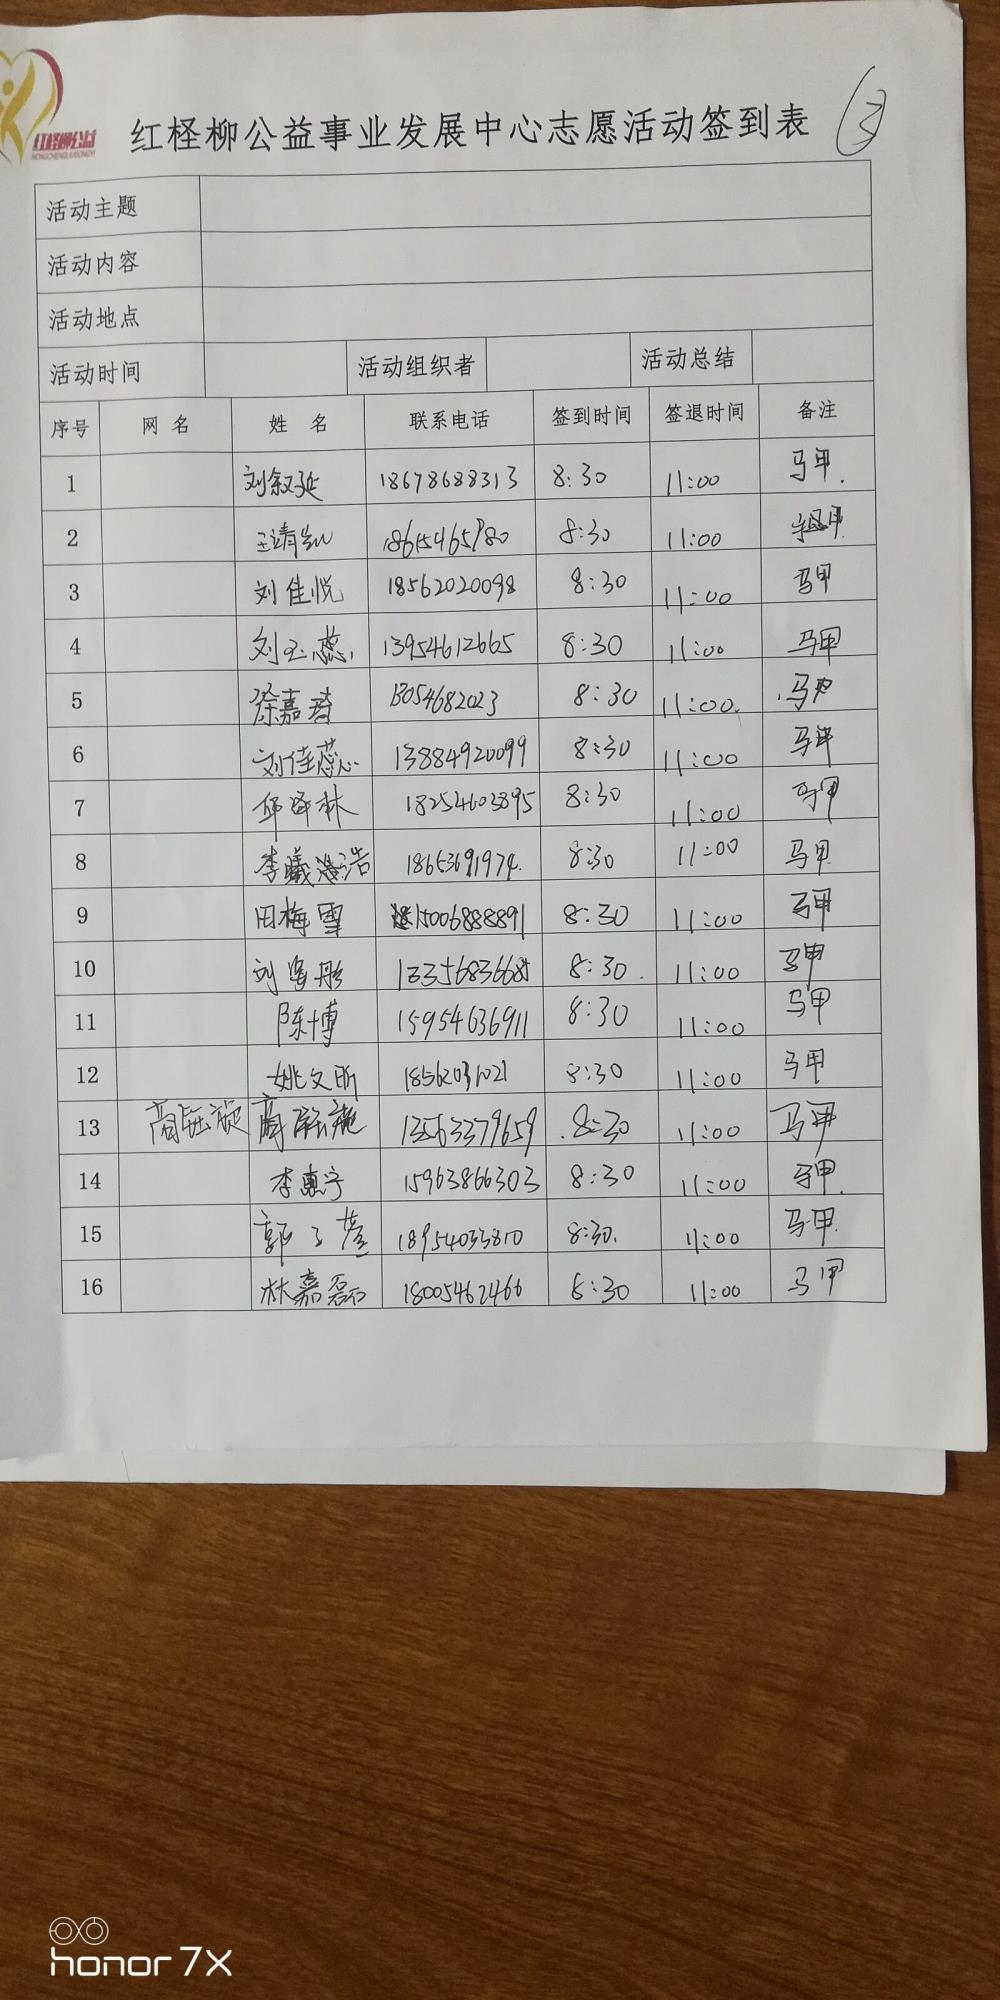 红柽柳公益
HONGCHENGLIUGONGYI
红柽柳公益事业发展中心志愿活动签到表 ③
活动主题
活动内容
活动地点
活动时间 活动组织者 活动总结
序号 网名 姓名 联系电话 签到时间 签退时间 备注
1 刘叙延 18678688313 8:30 11:00 马甲.
2 王靖 8:30 11:00
3 刘佳悦 18562020098 8:30 11:00 马甲
4 刘玉蕊 13954612665 8:30 11:00 马甲
5 徐嘉 8:30 11:00. 马甲
6 刘佳蕊 13884920099 8:30 11:00 马甲
7 邱泽林 18254603895 8:30 11:00 马甲
8 李曦浩 8:30 11:00 马甲
9 田梅雪 15006888891 8:30 11:00 马甲
10 刘彤 8:30. 11:00 马甲
11 陈博 15954636911 8:30 11:00 马甲
12 姚文昕 18562031021 8:30 11:00 马甲
13 商钰旋 商钰旋 13563379659 8:30 11:00 马甲
14 李惠宁 15963866303 8:30 11:00 马甲.
15 郭子萱 18954033810 8:30. 11:00 马甲.
16 林嘉磊 18005462466 8:30 11:00 马甲
honor 7X